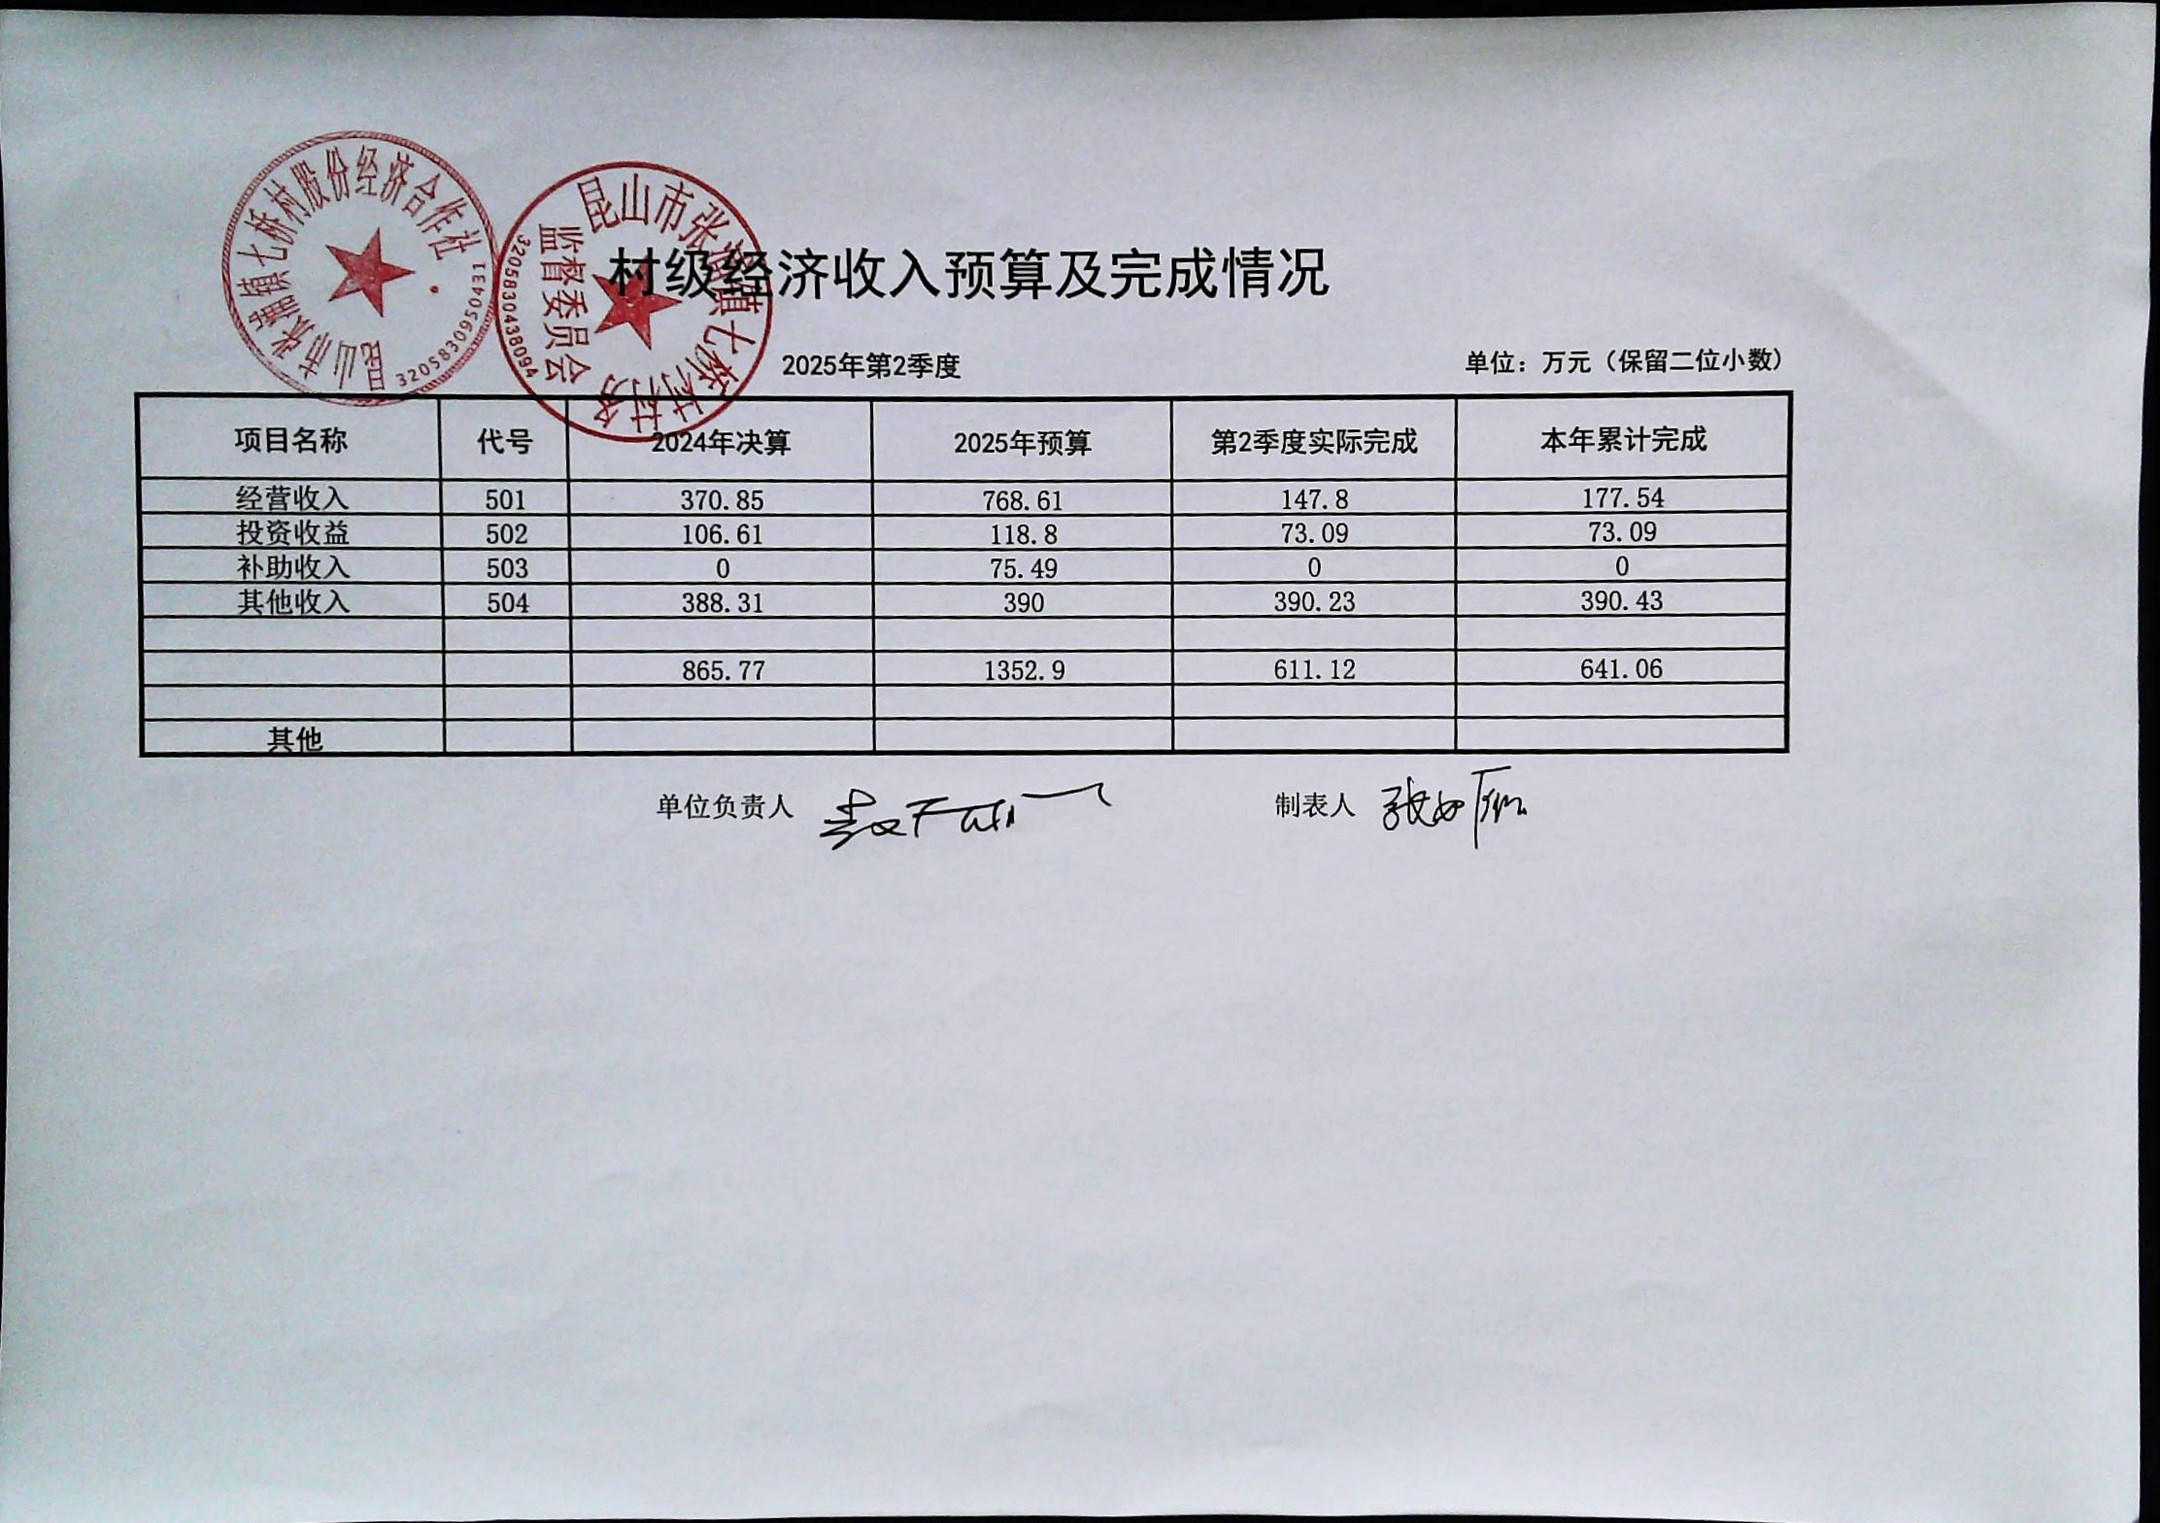 昆山市张浦镇七桥村股份经济合作社
昆山市张浦镇七桥村村务
监督委员会
3205830438094
村级经济收入预算及完成情况
2025年第2季度 单位：万元（保留二位小数）
项目名称 代号 2024年决算 2025年预算 第2季度实际完成 本年累计完成
经营收入 501 370.85 768.61 147.8 177.54
投资收益 502 106.61 118.8 73.09 73.09
补助收入 503 0 75.49 0 0
其他收入 504 388.31 390 390.23 390.43
865.77 1352.9 611.12 641.06
其他
单位负责人 制表人